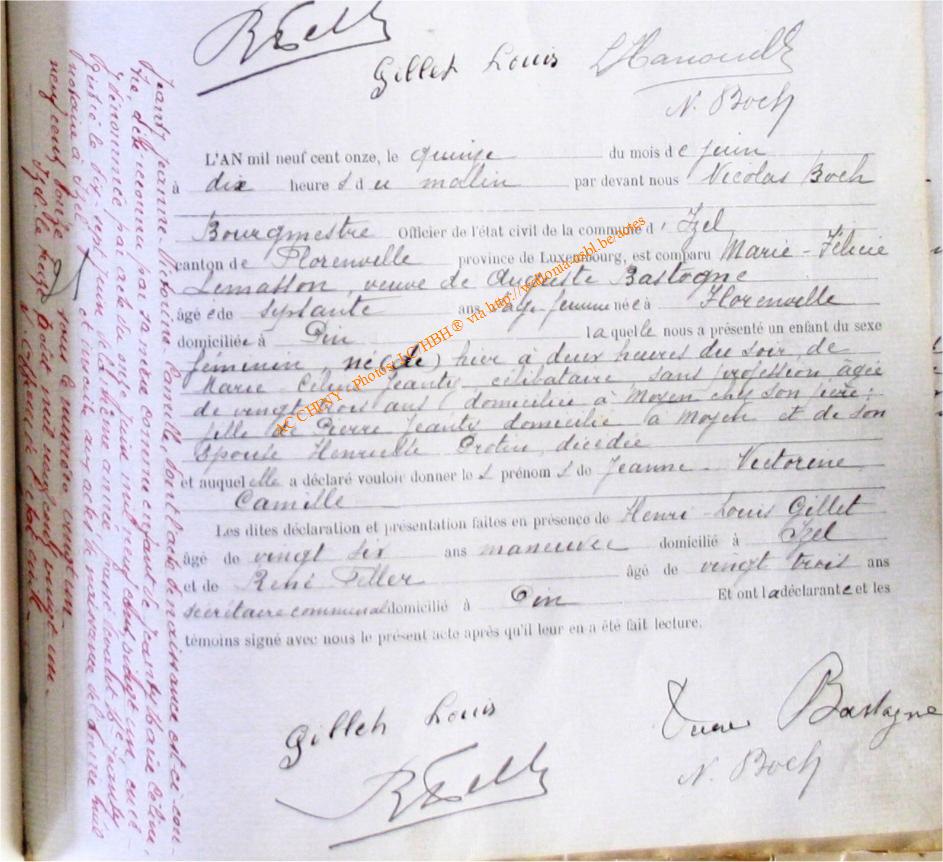 R Feller
Gillet Louis
N. Boch
L'AN mil neuf cent onze, le quinze du mois de juin
à dix heures du matin par devant nous Nicolas Boch
Bourgmestre Officier de l'état civil de la commune d'Izel
canton de Florenville province de Luxembourg, est comparu Marie-Félicie
Lemasson, veuve de Auguste Bastogne
âgée de septante ans sage-femme née à Florenville
domiciliée à Pin laquelle nous a présenté un enfant du sexe
féminin né(e) hier à deux heures du soir, de
Marie Céline Jeanty célibataire sans profession âgée
de vingt trois ans domiciliée à Moyen chez son père;
fille de Pierre Jeanty domicilié à Moyen et de son
épouse Henriette décédée
et auquel elle a déclaré vouloir donner les prénoms de Jeanne-Victorine
Camille
Les dites déclaration et présentation faites en présence de Henri-Louis Gillet
âgé de vingt six ans manœuvre domicilié à Izel
et de René Feller âgé de vingt trois ans
secrétaire communal domicilié à Pin Et ont la déclarante et les
témoins signé avec nous le présent acte après qu'il leur en a été fait lecture.
Gillet Louis
Bastogne
R Feller
N. Boch
Jeanty Jeanne-Victorine Camille dont l'acte de naissance est ci con-
tre, a été reconnu par sa mère comme enfant de Jeanty Marie Céline,
y dénommée par acte du onze juin mil neuf cent vingt un, enre-
gistré le dix sept juin de la même année, passé devant Me Jeanty
notaire à Izel et inscrite aux actes de naissance de l'année mil
neuf cent onze sous le numéro vingt un
Izel le mil neuf cent vingt un
L'officier de l'état civil
ACCHNY - Photos LC HBH® via http://wallonia.mbl.be/actes